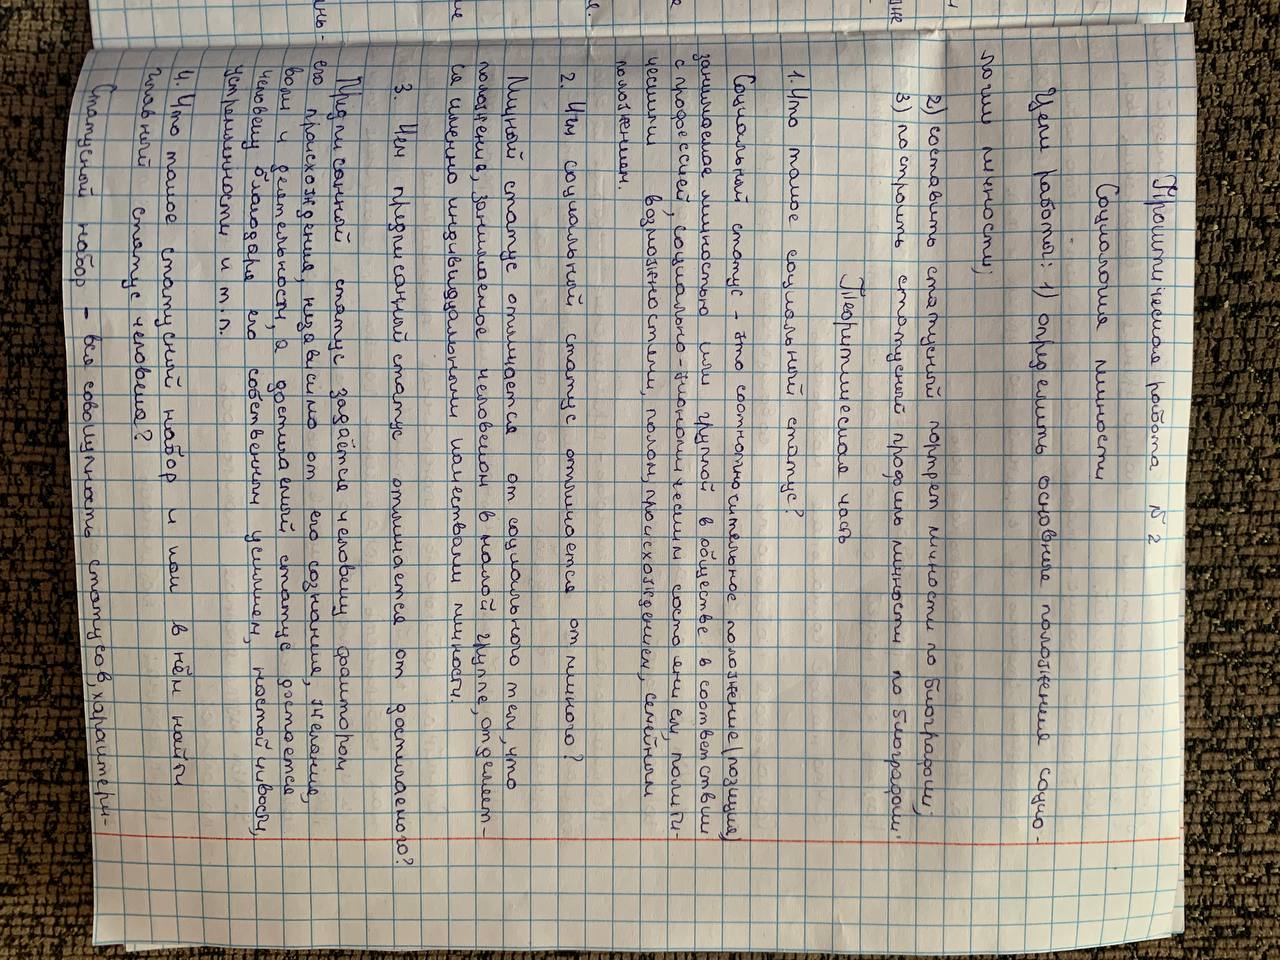 Практическая работа №2
Социология личности
Цели работы: 1) определить основные положения социо-
логии личности;
2) составить статусный портрет личности по биографии;
3) построить статусный профиль личности по биографии.
Теоритическая часть
1. Что такое социальный статус?
Социальный статус - это соотносительное положение (позиция),
занимаемое личностью или группой в обществе в соответствии
с профессией, социально-экономическим состоянием, полити-
ческими возможностями, полом, происхождением, семейным
положением.
2. Чем социальный статус отличается от личного?
Личный статус отличается от социального тем, что
положение, занимаемое человеком в малой группе, определяет-
ся именно индивидуальными качествами личности.
3. Чем предписанный статус отличается от достигаемого?
Предписанный статус задаётся человеку фактором
его происхождения, независимо от его сознания, желания,
воли и деятельности, а достигаемый статус достаётся
человеку благодаря его собственным усилием, настойчивости,
устремлённости и т.п.
4. Что такое статусный набор и как в нём найти
главный статус человека?
Статусной набор - вся совокупность статусов, характери-